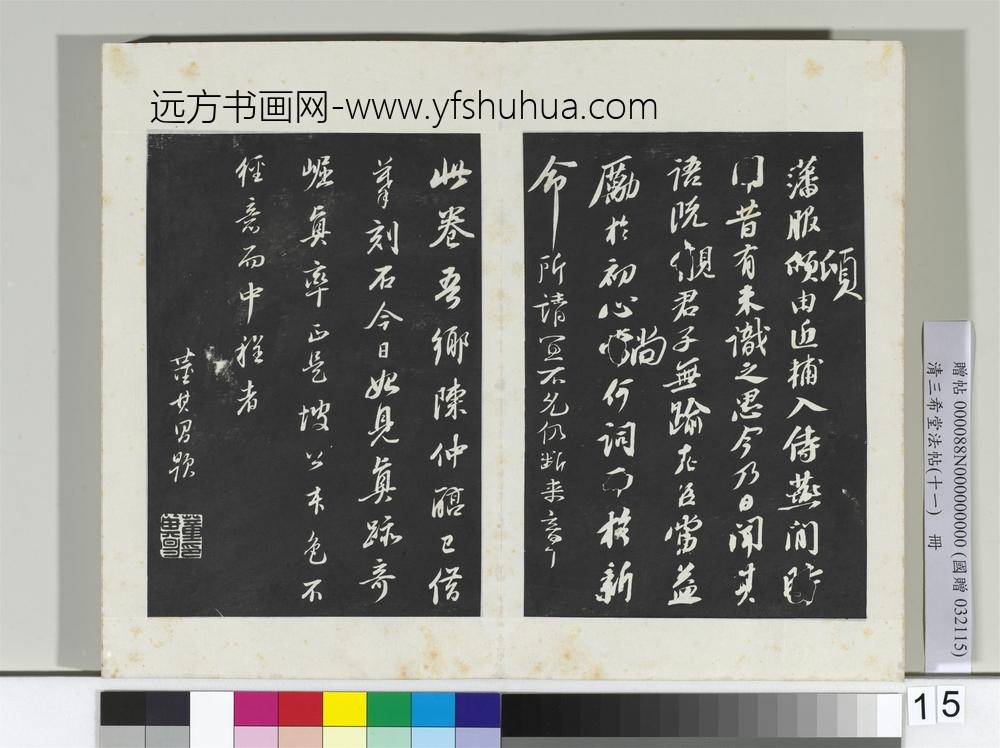 远方书画网-www.yfshuhua.com
藩服傾由近捕入侍燕閒
頃
昔有未識之思今乃日聞其
語既覬君子無踰在臣當益
勵於初心尚何詞於新
命所請宜不允仍斷來章
此卷吾鄉陳仲醇已借
摹刻石今日始見真跡奇
崛真率正是坡公本色不
經意而中程者
董其昌題
董其昌印
贈帖 000088N000000000 (國贈 032115)
清三希堂法帖(十一) 冊
15